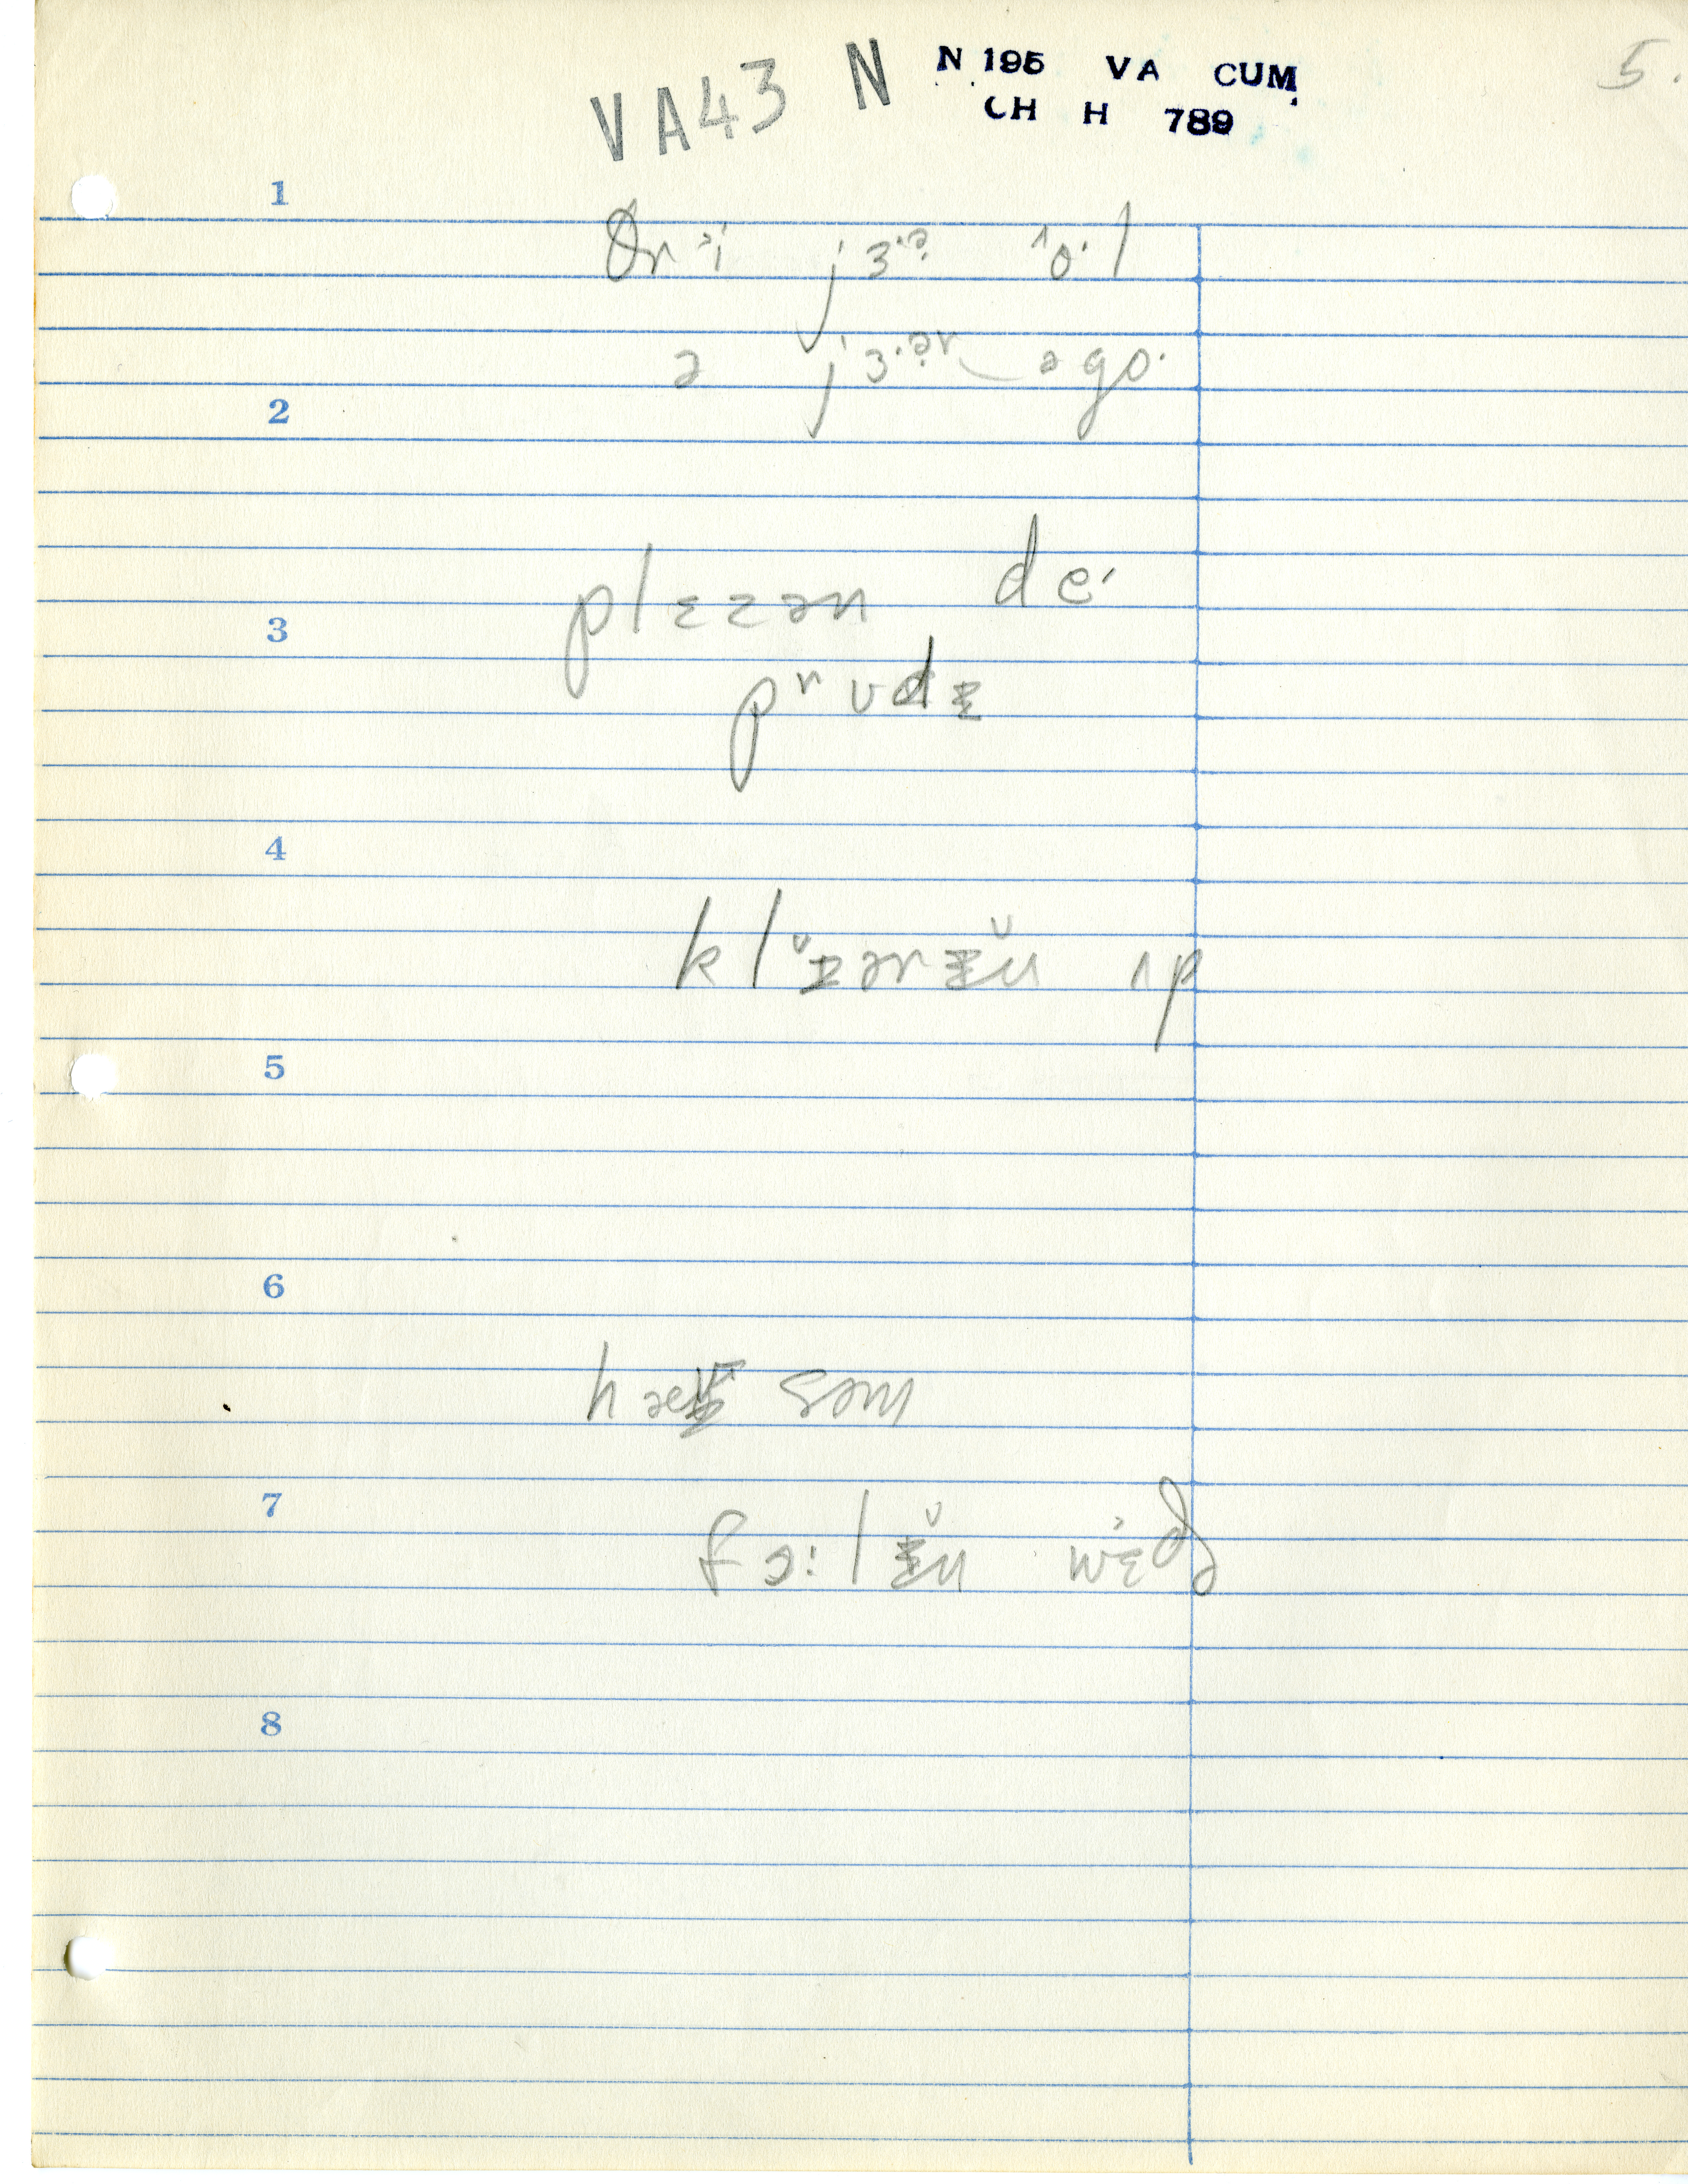 VA43 N N 195 VA CUM
CH H 789
5.
1
θrᵊi jɜ·ᵊ ˄o·l
ə jɜ·ᵊr‿əgo·
2
plɛzən de·
3
prʊdɪ
4
klɪ̆ərɪ̆n ʌp
5
6
hæ səm
7
fɔ:lɪ̆n wɛðə
8